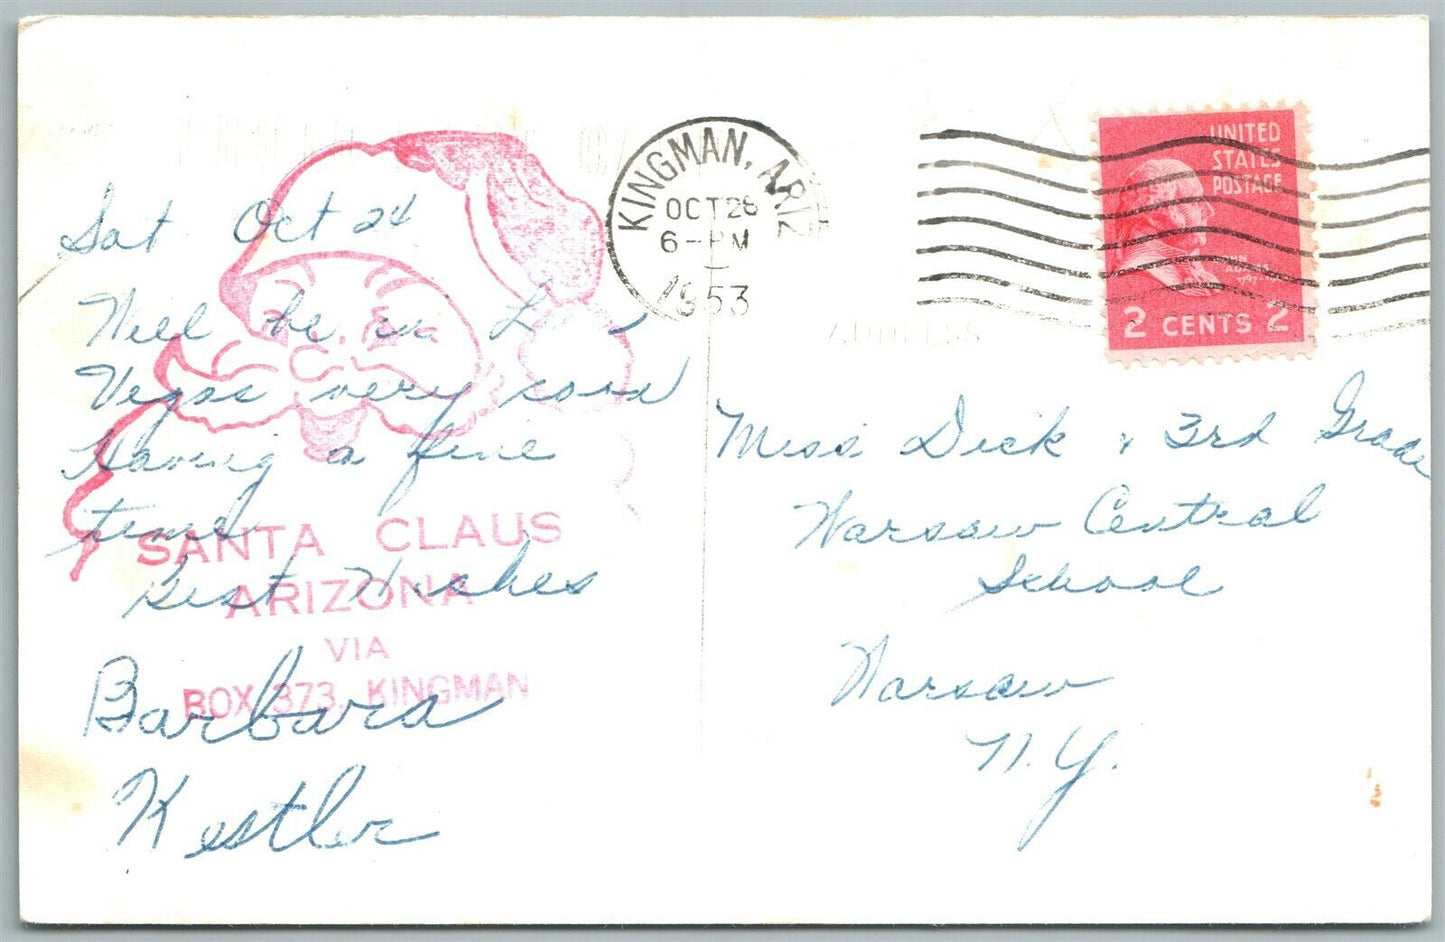 Sat Oct 24
Will be in Las
Vegas very soon
Having a fine
time
Best Wishes
Barbara
Kestler
SANTA CLAUS
ARIZONA
VIA
BOX 373, KINGMAN
KINGMAN, ARIZ
OCT 26
6-PM
1953
UNITED
STATES
POSTAGE
JOHN
ADAMS
2 CENTS 2
Miss Dick & 3rd Grade
Warsaw Central
School
Warsaw
N.Y.